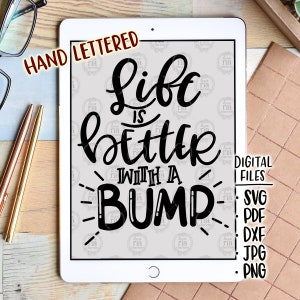 HAND LETTERED
Life
IS
better
WITH A
BUMP
DIGITAL
FILES
• SVG
• PDF
• DXF
• JPG
• PNG